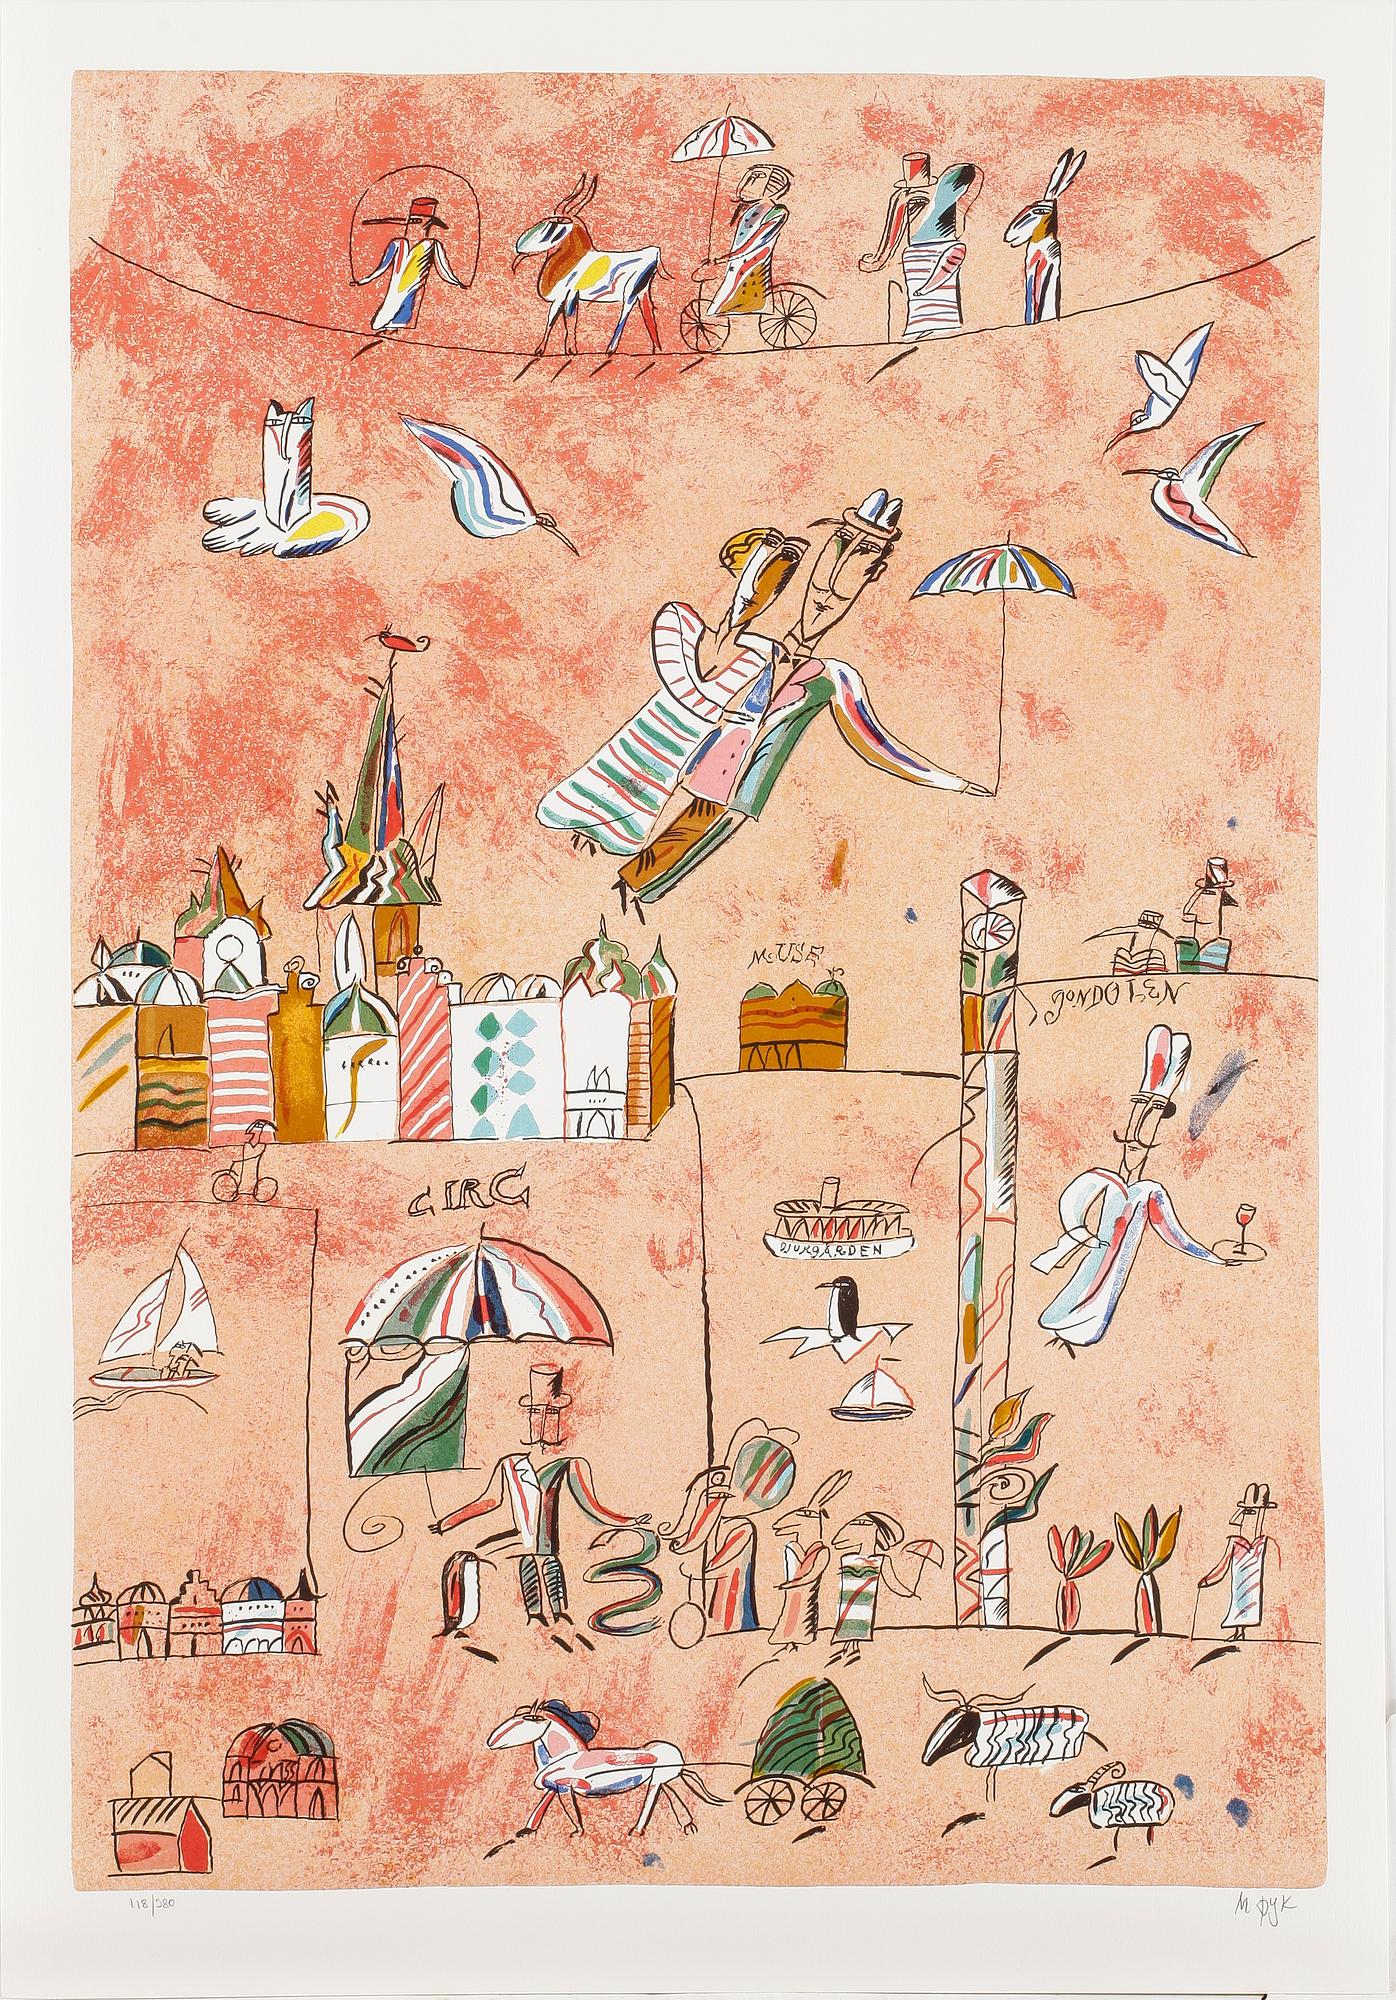 McUSE
gONDOLEN
CIRC
DJURGÅRDEN
118/380
M фУК